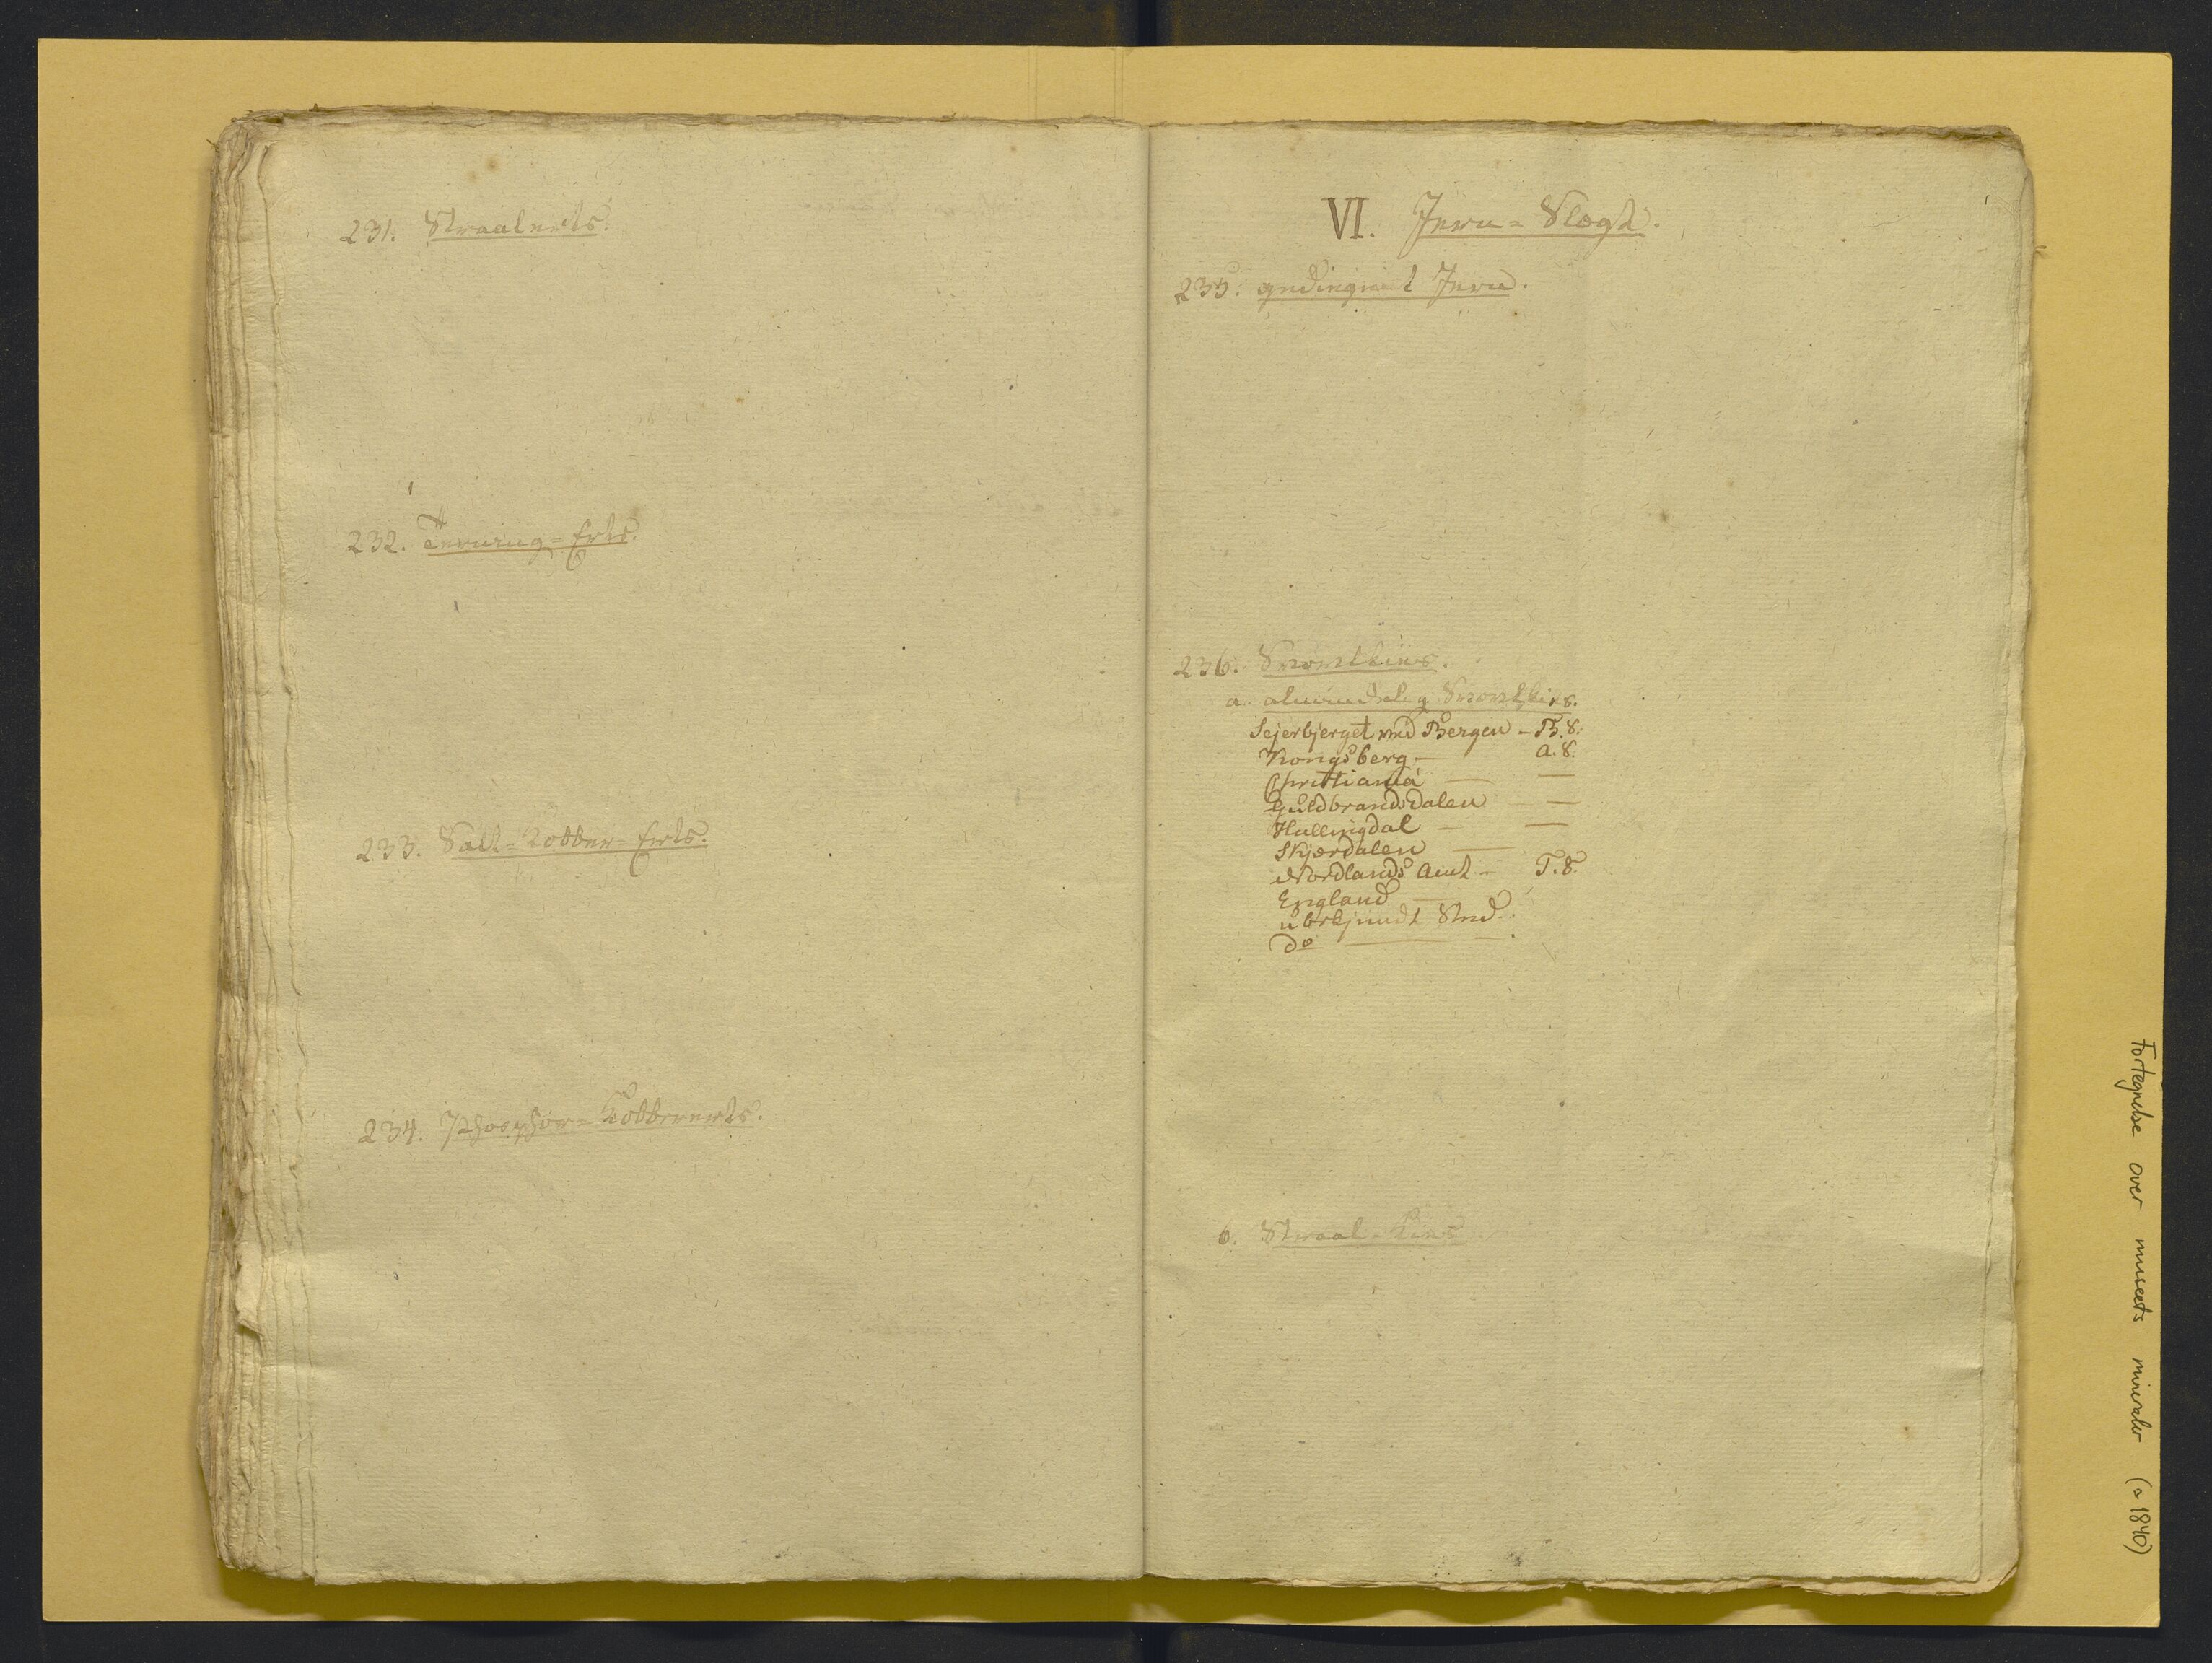 231. Straalerts.
232. Terning=Erts.
233. Salt=Kobber=Erts.
234. Phosphor=Kobbererts.
VI. Jern=Slægt.
235. gedinget Jern.
236. Svovelkies.
a. almindelig Svovelkies.
Sejerbjerget ved Bergen – B. S.
Kongsberg – A. S.
Christiania — —
Guldbrandsdalen —
Hallingdal – —
Skjerdalen —
Nordlands Amt – T. S.
England —
ubekjendt Sted.
do — –.
b. Straal=Kies
Fortegnelse over museets mineraler (ca 1840)